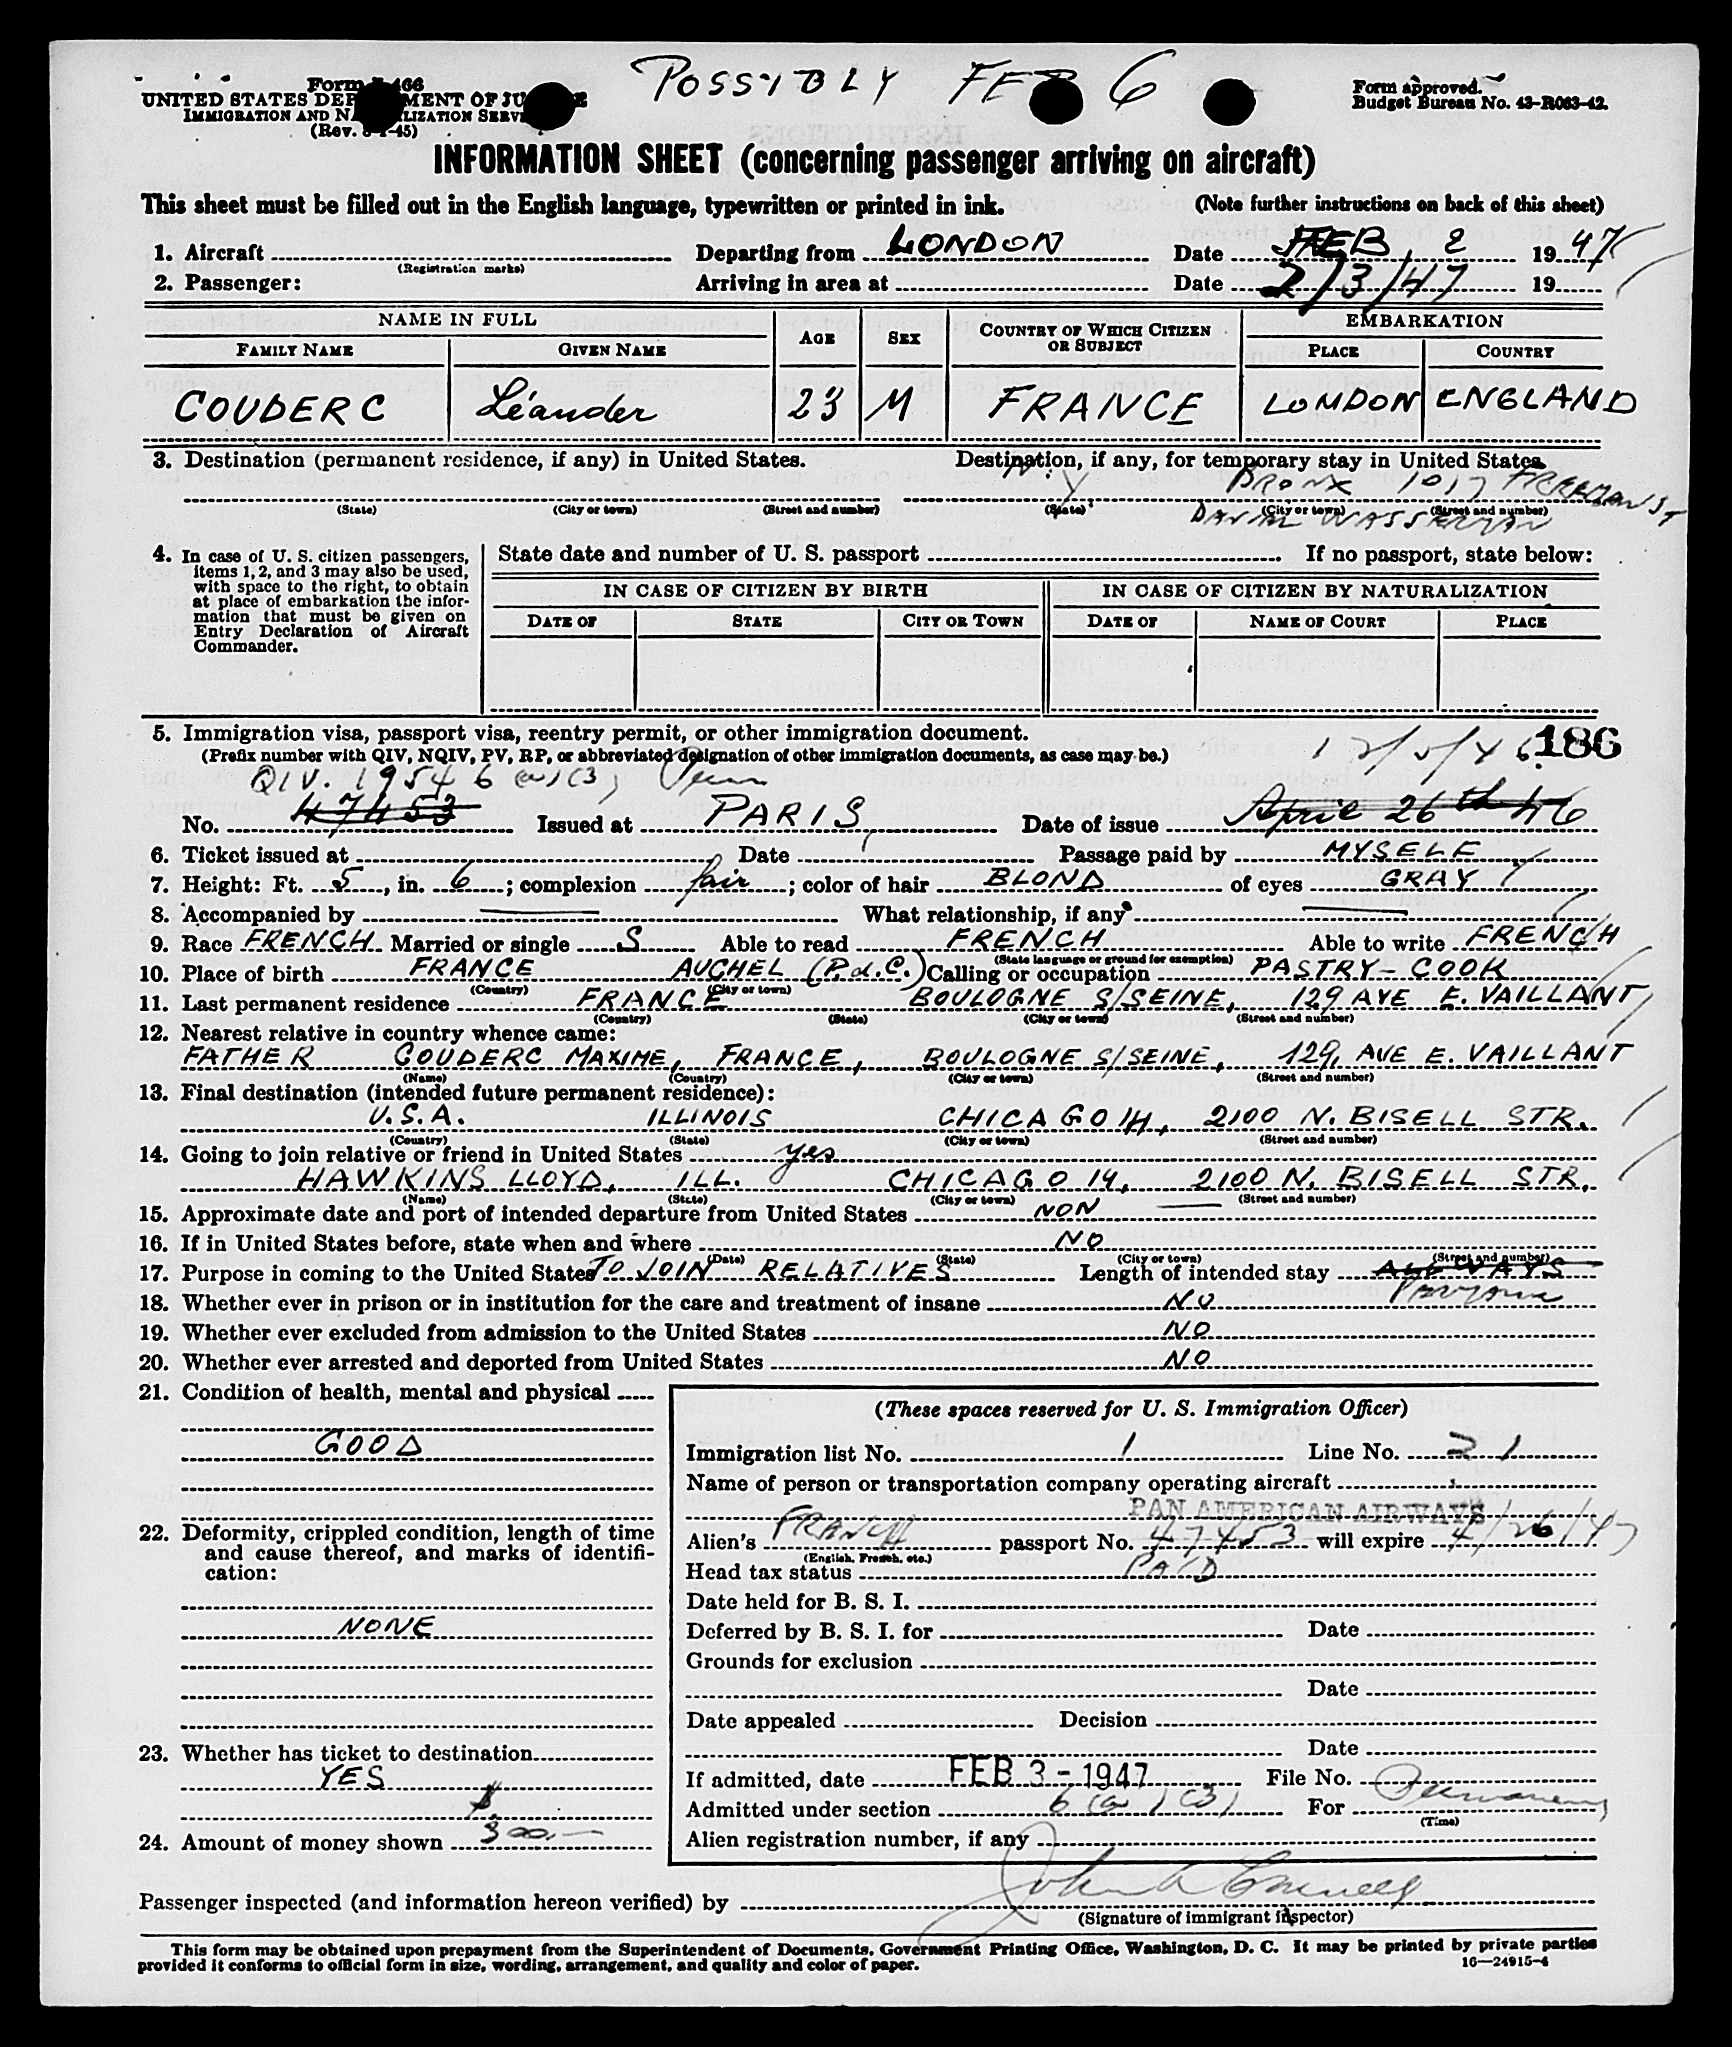 POSSIBLY FEB 6
Form I-466
UNITED STATES DEPARTMENT OF JUSTICE
IMMIGRATION AND NATURALIZATION SERVICE
(Rev. 3-1-45)
Form approved.
Budget Bureau No. 43-R063-42.
INFORMATION SHEET (concerning passenger arriving on aircraft)
This sheet must be filled out in the English language, typewritten or printed in ink. (Note further instructions on back of this sheet)
1. Aircraft Departing from LONDON Date FEB, 2 1947
(Registration marks)
2. Passenger: Arriving in area at Date 2/3/47 19
NAME IN FULL AGE SEX COUNTRY OF WHICH CITIZEN OR SUBJECT EMBARKATION
FAMILY NAME GIVEN NAME PLACE COUNTRY
COUDERC Léander 23 M FRANCE LONDON ENGLAND
3. Destination (permanent residence, if any) in United States. Destination, if any, for temporary stay in United States.
N.Y. BRONX 1017 FREEMAN ST
(State) (City or town) (Street and number) (State) (City or town) (Street and number)
WASSERMAN
4. In case of U. S. citizen passengers, items 1, 2, and 3 may also be used, with space to the right, to obtain at place of embarkation the information that must be given on Entry Declaration of Aircraft Commander.
State date and number of U. S. passport If no passport, state below:
IN CASE OF CITIZEN BY BIRTH IN CASE OF CITIZEN BY NATURALIZATION
DATE OF STATE CITY OR TOWN DATE OF NAME OF COURT PLACE
5. Immigration visa, passport visa, reentry permit, or other immigration document.
(Prefix number with QIV, NQIV, PV, RP, or abbreviated designation of other immigration documents, as case may be.)
12/5/46 186
QIV. 1954 6(a)(3) Perm
No. 47453 Issued at PARIS, Date of issue April 26th 46
6. Ticket issued at Date Passage paid by MYSELF
7. Height: Ft. 5, in. 6; complexion fair; color of hair BLOND of eyes GRAY
8. Accompanied by — What relationship, if any —
9. Race FRENCH Married or single S Able to read FRENCH Able to write FRENCH
(State language or ground for exemption)
10. Place of birth FRANCE AUCHEL (P.d.C.) Calling or occupation PASTRY-COOK
(Country) (City or town)
11. Last permanent residence FRANCE BOULOGNE S/SEINE, 129 AVE E. VAILLANT
(Country) (State) (City or town) (Street and number)
12. Nearest relative in country whence came:
FATHER COUDERC MAXIME, FRANCE, BOULOGNE S/SEINE, 129, AVE E. VAILLANT
(Name) (Country) (City or town) (Street and number)
13. Final destination (intended future permanent residence):
U.S.A. ILLINOIS CHICAGO 14, 2100 N. BISELL STR.
(Country) (State) (City or town) (Street and number)
14. Going to join relative or friend in United States yes
HAWKINS LLOYD, ILL. CHICAGO 14, 2100 N. BISELL STR.
(Name) (State) (City or town) (Street and number)
15. Approximate date and port of intended departure from United States NON —
16. If in United States before, state when and where NO
(Date) (State) (City or town) (Street and number)
17. Purpose in coming to the United States TO JOIN RELATIVES Length of intended stay ALWAYS
18. Whether ever in prison or in institution for the care and treatment of insane NO
19. Whether ever excluded from admission to the United States NO
20. Whether ever arrested and deported from United States NO
21. Condition of health, mental and physical
GOOD
22. Deformity, crippled condition, length of time and cause thereof, and marks of identification:
NONE
23. Whether has ticket to destination
YES
$
24. Amount of money shown 300.—
(These spaces reserved for U. S. Immigration Officer)
Immigration list No. 1 Line No. 21
Name of person or transportation company operating aircraft
PAN AMERICAN AIRWAYS
Alien's FRANCH passport No. 47453 will expire 4/26/47
(English, French, etc.)
Head tax status PAID
Date held for B. S. I.
Deferred by B. S. I. for Date
Grounds for exclusion
Date
Date appealed Decision
Date
If admitted, date FEB 3 - 1947 File No.
Admitted under section 6(a)(3) For Permanent
(Time)
Alien registration number, if any
Passenger inspected (and information hereon verified) by
(Signature of immigrant inspector)
This form may be obtained upon prepayment from the Superintendent of Documents, Government Printing Office, Washington, D. C. It may be printed by private parties
provided it conforms to official form in size, wording, arrangement, and quality and color of paper.
16—24915-4